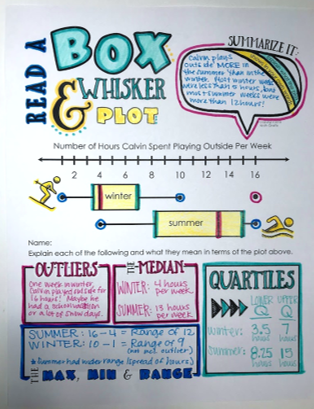 READ A
BOX
& WHISKER
PLOT
SUMMARIZE IT:
Calvin plays
outside MORE in
the summer than in the
winter. Most winter weeks
were less than 10 hours, but
most summer weeks were
more than 12 hours!
Number of Hours Calvin Spent Playing Outside Per Week
2 4 6 8 10 12 14 16
winter
summer
Name:
Explain each of the following and what they mean in terms of the plot above.
OUTLIERS
One week in winter,
Calvin played outside for
16 hours! Maybe he
had a school vacation
or a lot of snow days!
THE MEDIAN
WINTER: 4 hours
per week
SUMMER: 13 hours
per week
QUARTILES
LOWER Q UPPER Q
Winter: 3.5 hours 7 hours
Summer: 8.75 hours 15 hours
SUMMER: 16-4 = Range of 12
WINTER: 10-1 = Range of 9
(w/ not outlier)
*Summer had wider range (spread of hours)
THE MAX, MIN & RANGE